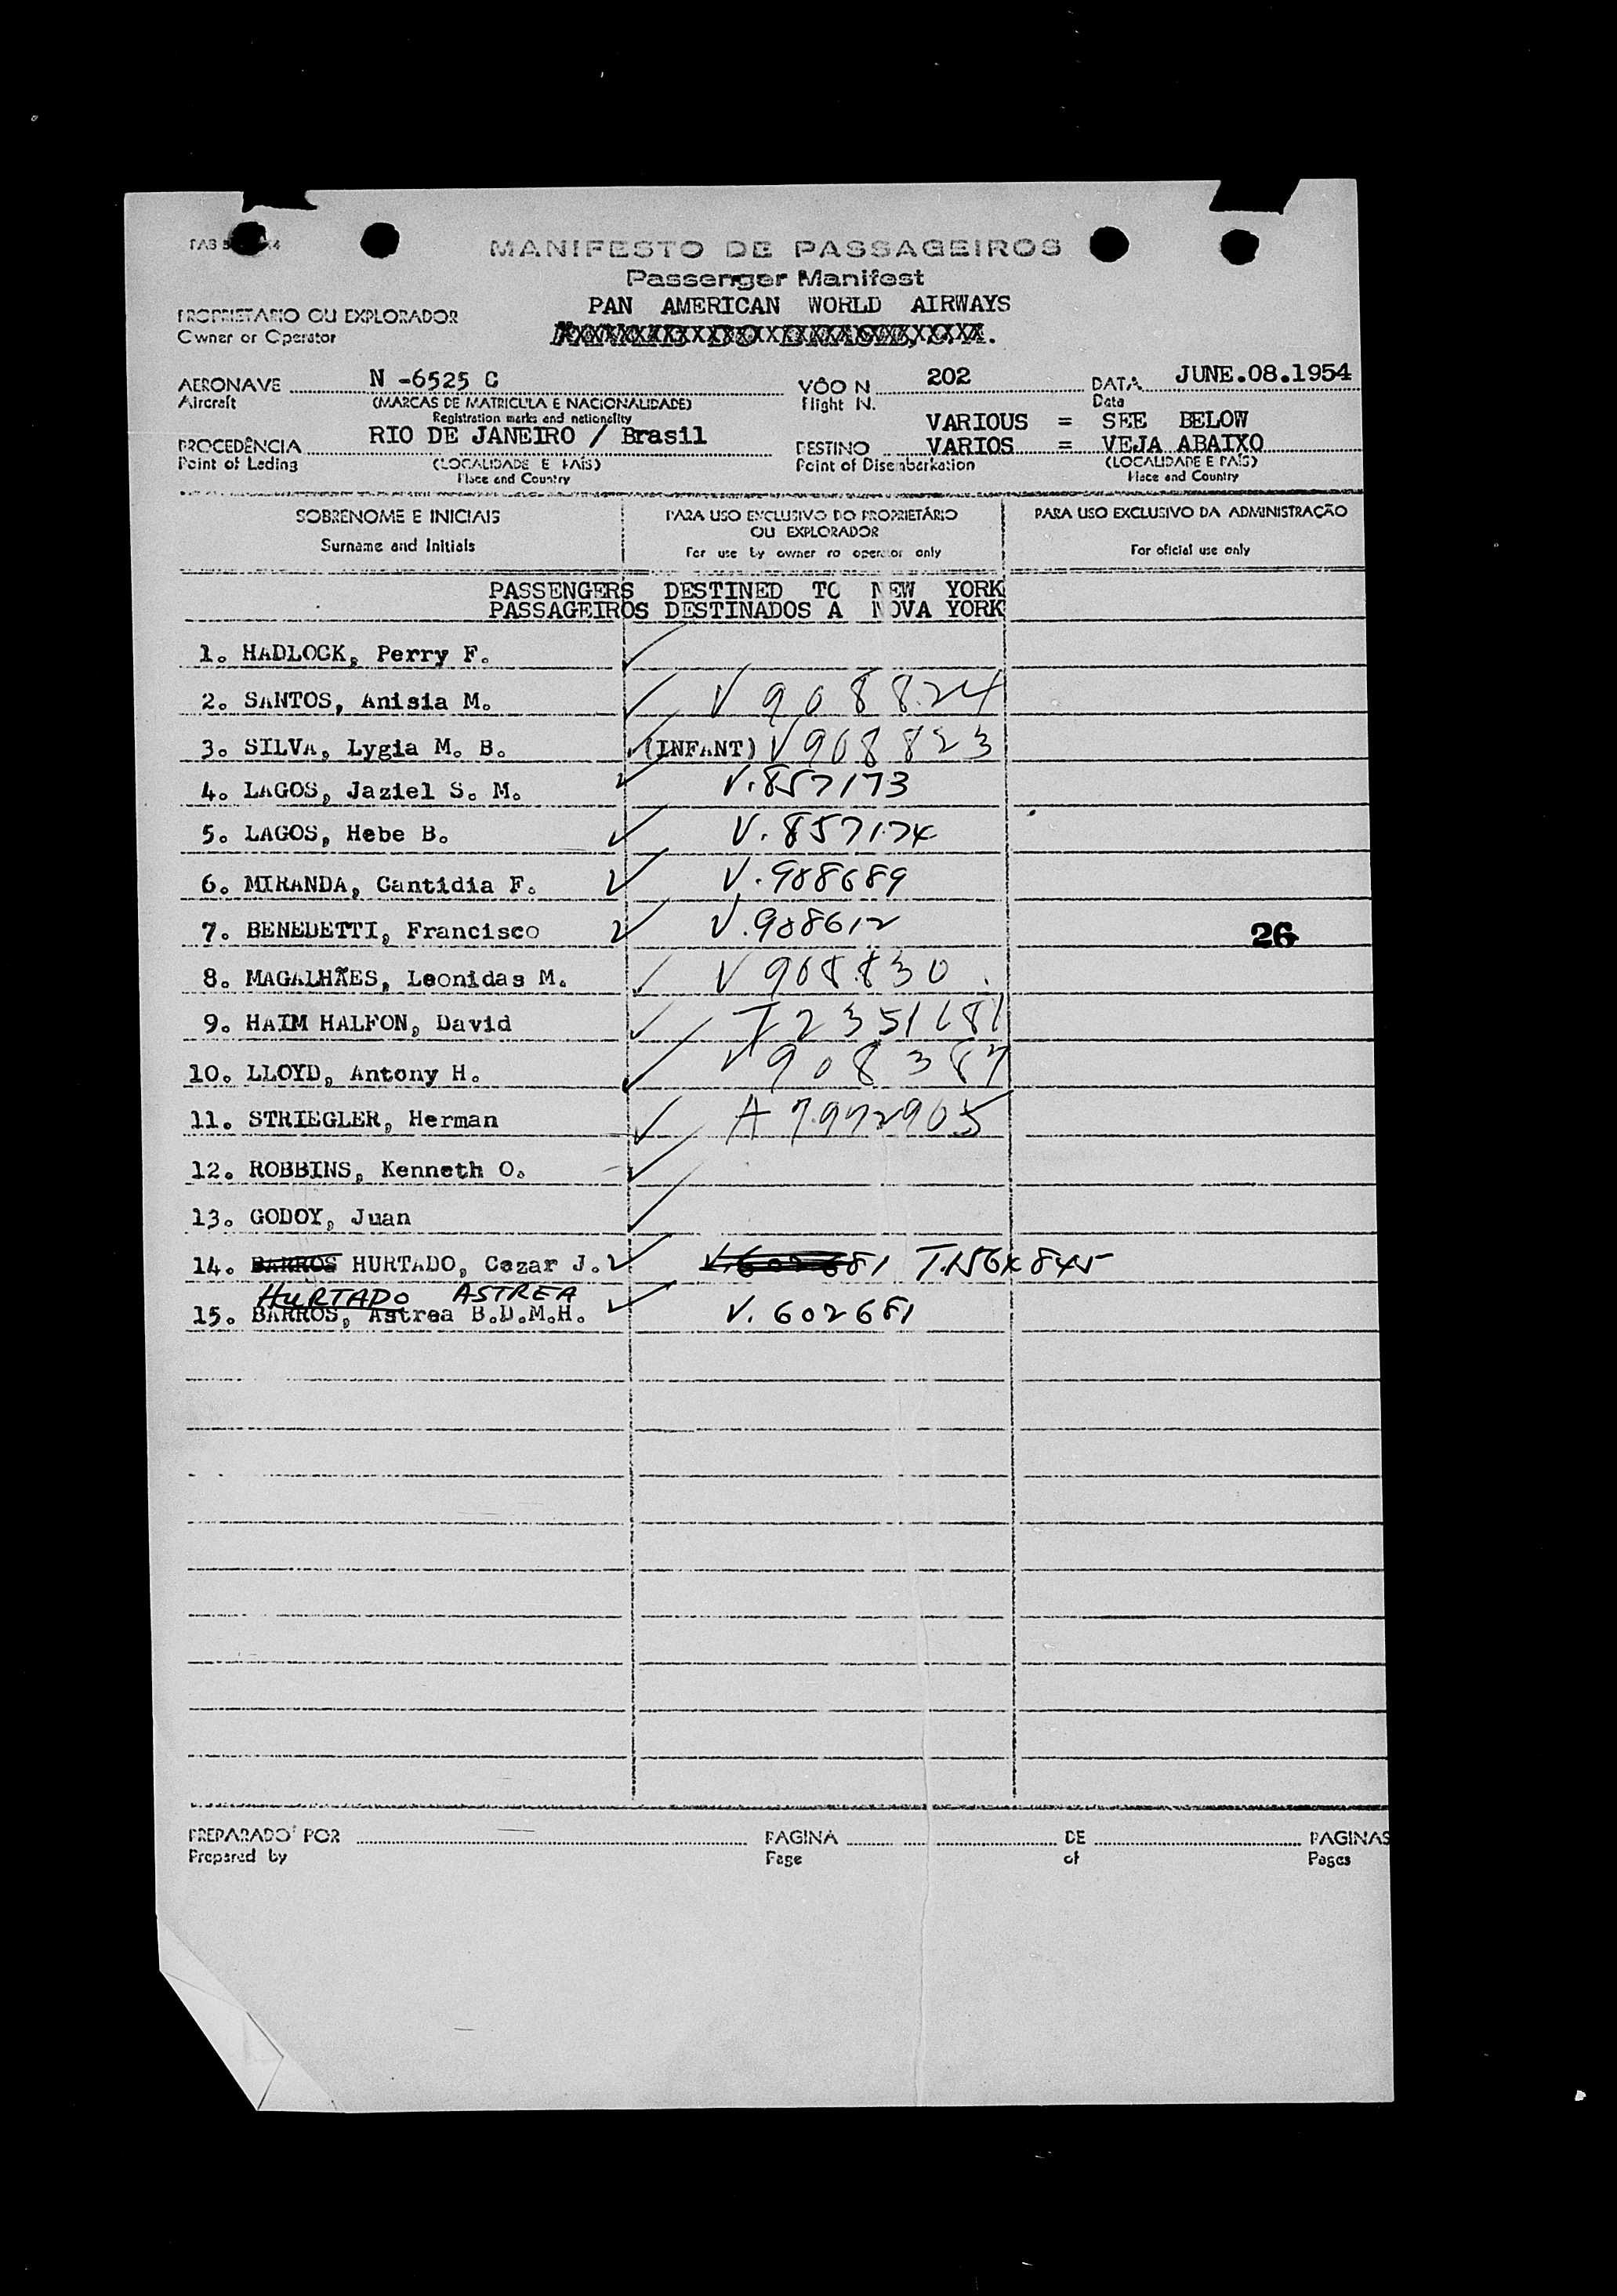 MANIFESTO DE PASSAGEIROS
Passenger Manifest
PROPRIETARIO OU EXPLORADOR
Owner or Operator
PAN AMERICAN WORLD AIRWAYS
AERONAVE N -6525 C
Aircraft
(MARCAS DE MATRICULA E NACIONALIDADE)
Registration marks and nationality
VÔO N. 202
Flight N.
DATA JUNE.08.1954
Date
PROCEDÊNCIA RIO DE JANEIRO / Brasil
Point of Lading
(LOCALIDADE E PAÍS)
Place and Country
VARIOUS = SEE BELOW
DESTINO VARIOS = VEJA ABAIXO
Point of Disembarkation
(LOCALIDADE E PAÍS)
Place and Country
SOBRENOME E INICIAIS
Surname and Initials
PARA USO EXCLUSIVO DO PROPRIETÁRIO
OU EXPLORADOR
For use by owner ro operator only
PARA USO EXCLUSIVO DA ADMINISTRAÇÃO
For oficial use only
PASSENGERS DESTINED TO NEW YORK
PASSAGEIROS DESTINADOS A NOVA YORK
1. HADLOCK, Perry F.
2. SANTOS, Anisia M. V 908824
3. SILVA, Lygia M. B. (INFANT) V908823
4. LAGOS, Jaziel S. M. V.857173
5. LAGOS, Hebe B. V.857174
6. MIRANDA, Cantidia F. V.908689
7. BENEDETTI, Francisco V.908612
26
8. MAGALHÃES, Leonidas M. V 908830
9. HAIM HALFON, David T2351681
10. LLOYD, Antony H. V908387
11. STRIEGLER, Herman A 7972905
12. ROBBINS, Kenneth O.
13. GODOY, Juan
14. BARROS HURTADO, Cezar J. V.602681
HURTADO ASTREA
15. BARROS, Astrea B.D.M.H. V. 602681
PREPARADO POR
Prepared by
PAGINA
Page
DE
of
PAGINAS
Pages